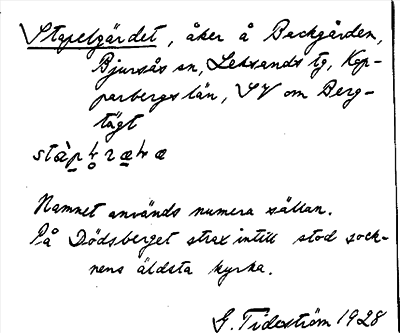 Stapelgärdet, åker å Backgården,
Bjursås sn, Leksands tg, Kop-
parbergs län, SV om Berg-
tägt
Namnet används numera sällan.
På Dödsberget strax intill stod sock-
nens äldsta kyrka.
G. Tideström 1928